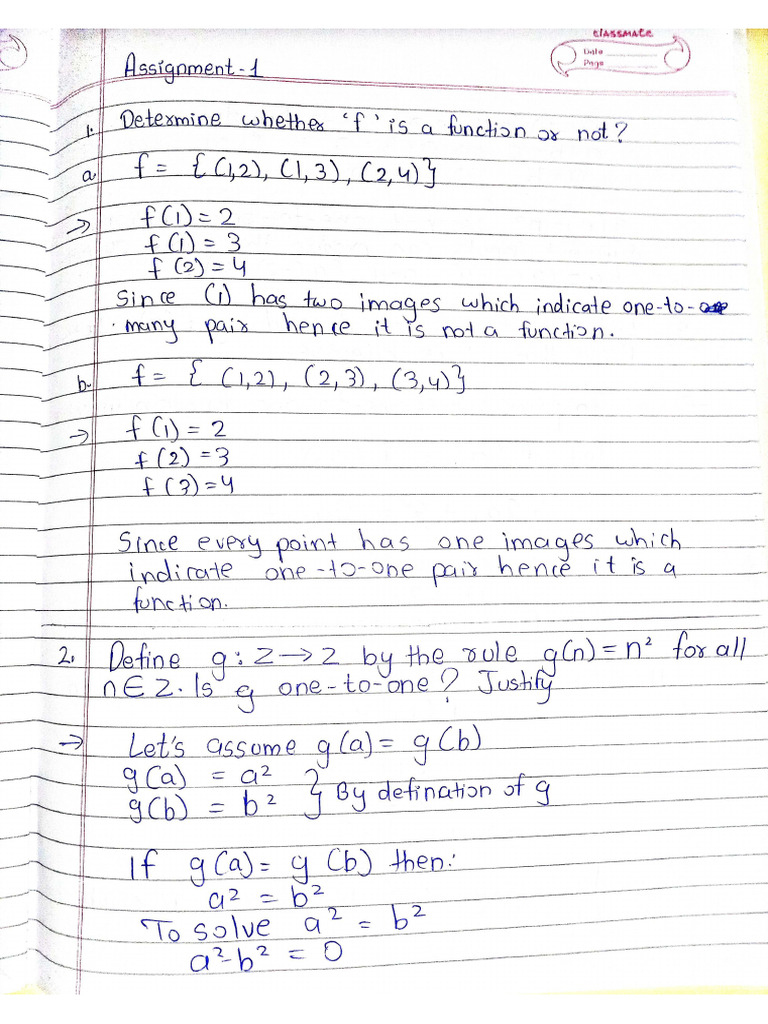 CLASSMATE
Date
Page
Assignment-1
1. Determine whether 'f' is a function or not?
a. f = { (1,2), (1,3), (2,4)}
→ f(1) = 2
f(1) = 3
f(2) = 4
Since (1) has two images which indicate one-to-
many pair hence it is not a function.
b. f = { (1,2), (2,3), (3,4)}
→ f(1) = 2
f(2) = 3
f(3) = 4
Since every point has one images which
indicate one-to-one pair hence it is a
function.
2. Define g: Z → Z by the rule g(n) = n² for all
n ∈ Z. Is g one-to-one? Justify
→ Let's assume g(a) = g(b)
g(a) = a²
g(b) = b² } By defination of g
If g(a) = g(b) then:
a² = b²
To solve a² = b²
a²-b² = 0